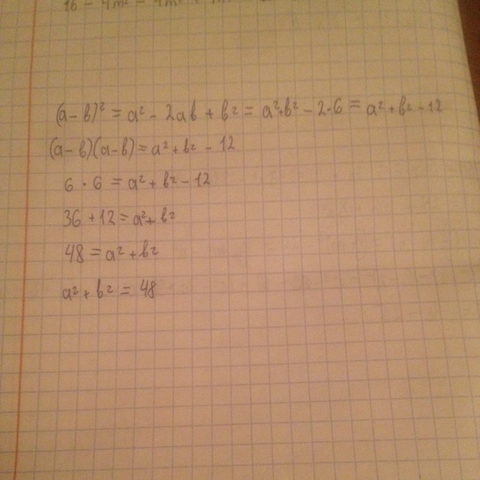 (a-b)² = a² - 2ab + b² = a²+b² - 2·6 = a² + b² - 12
(a-b)(a-b) = a² + b² - 12
6 · 6 = a² + b² - 12
36 + 12 = a² + b²
48 = a² + b²
a² + b² = 48